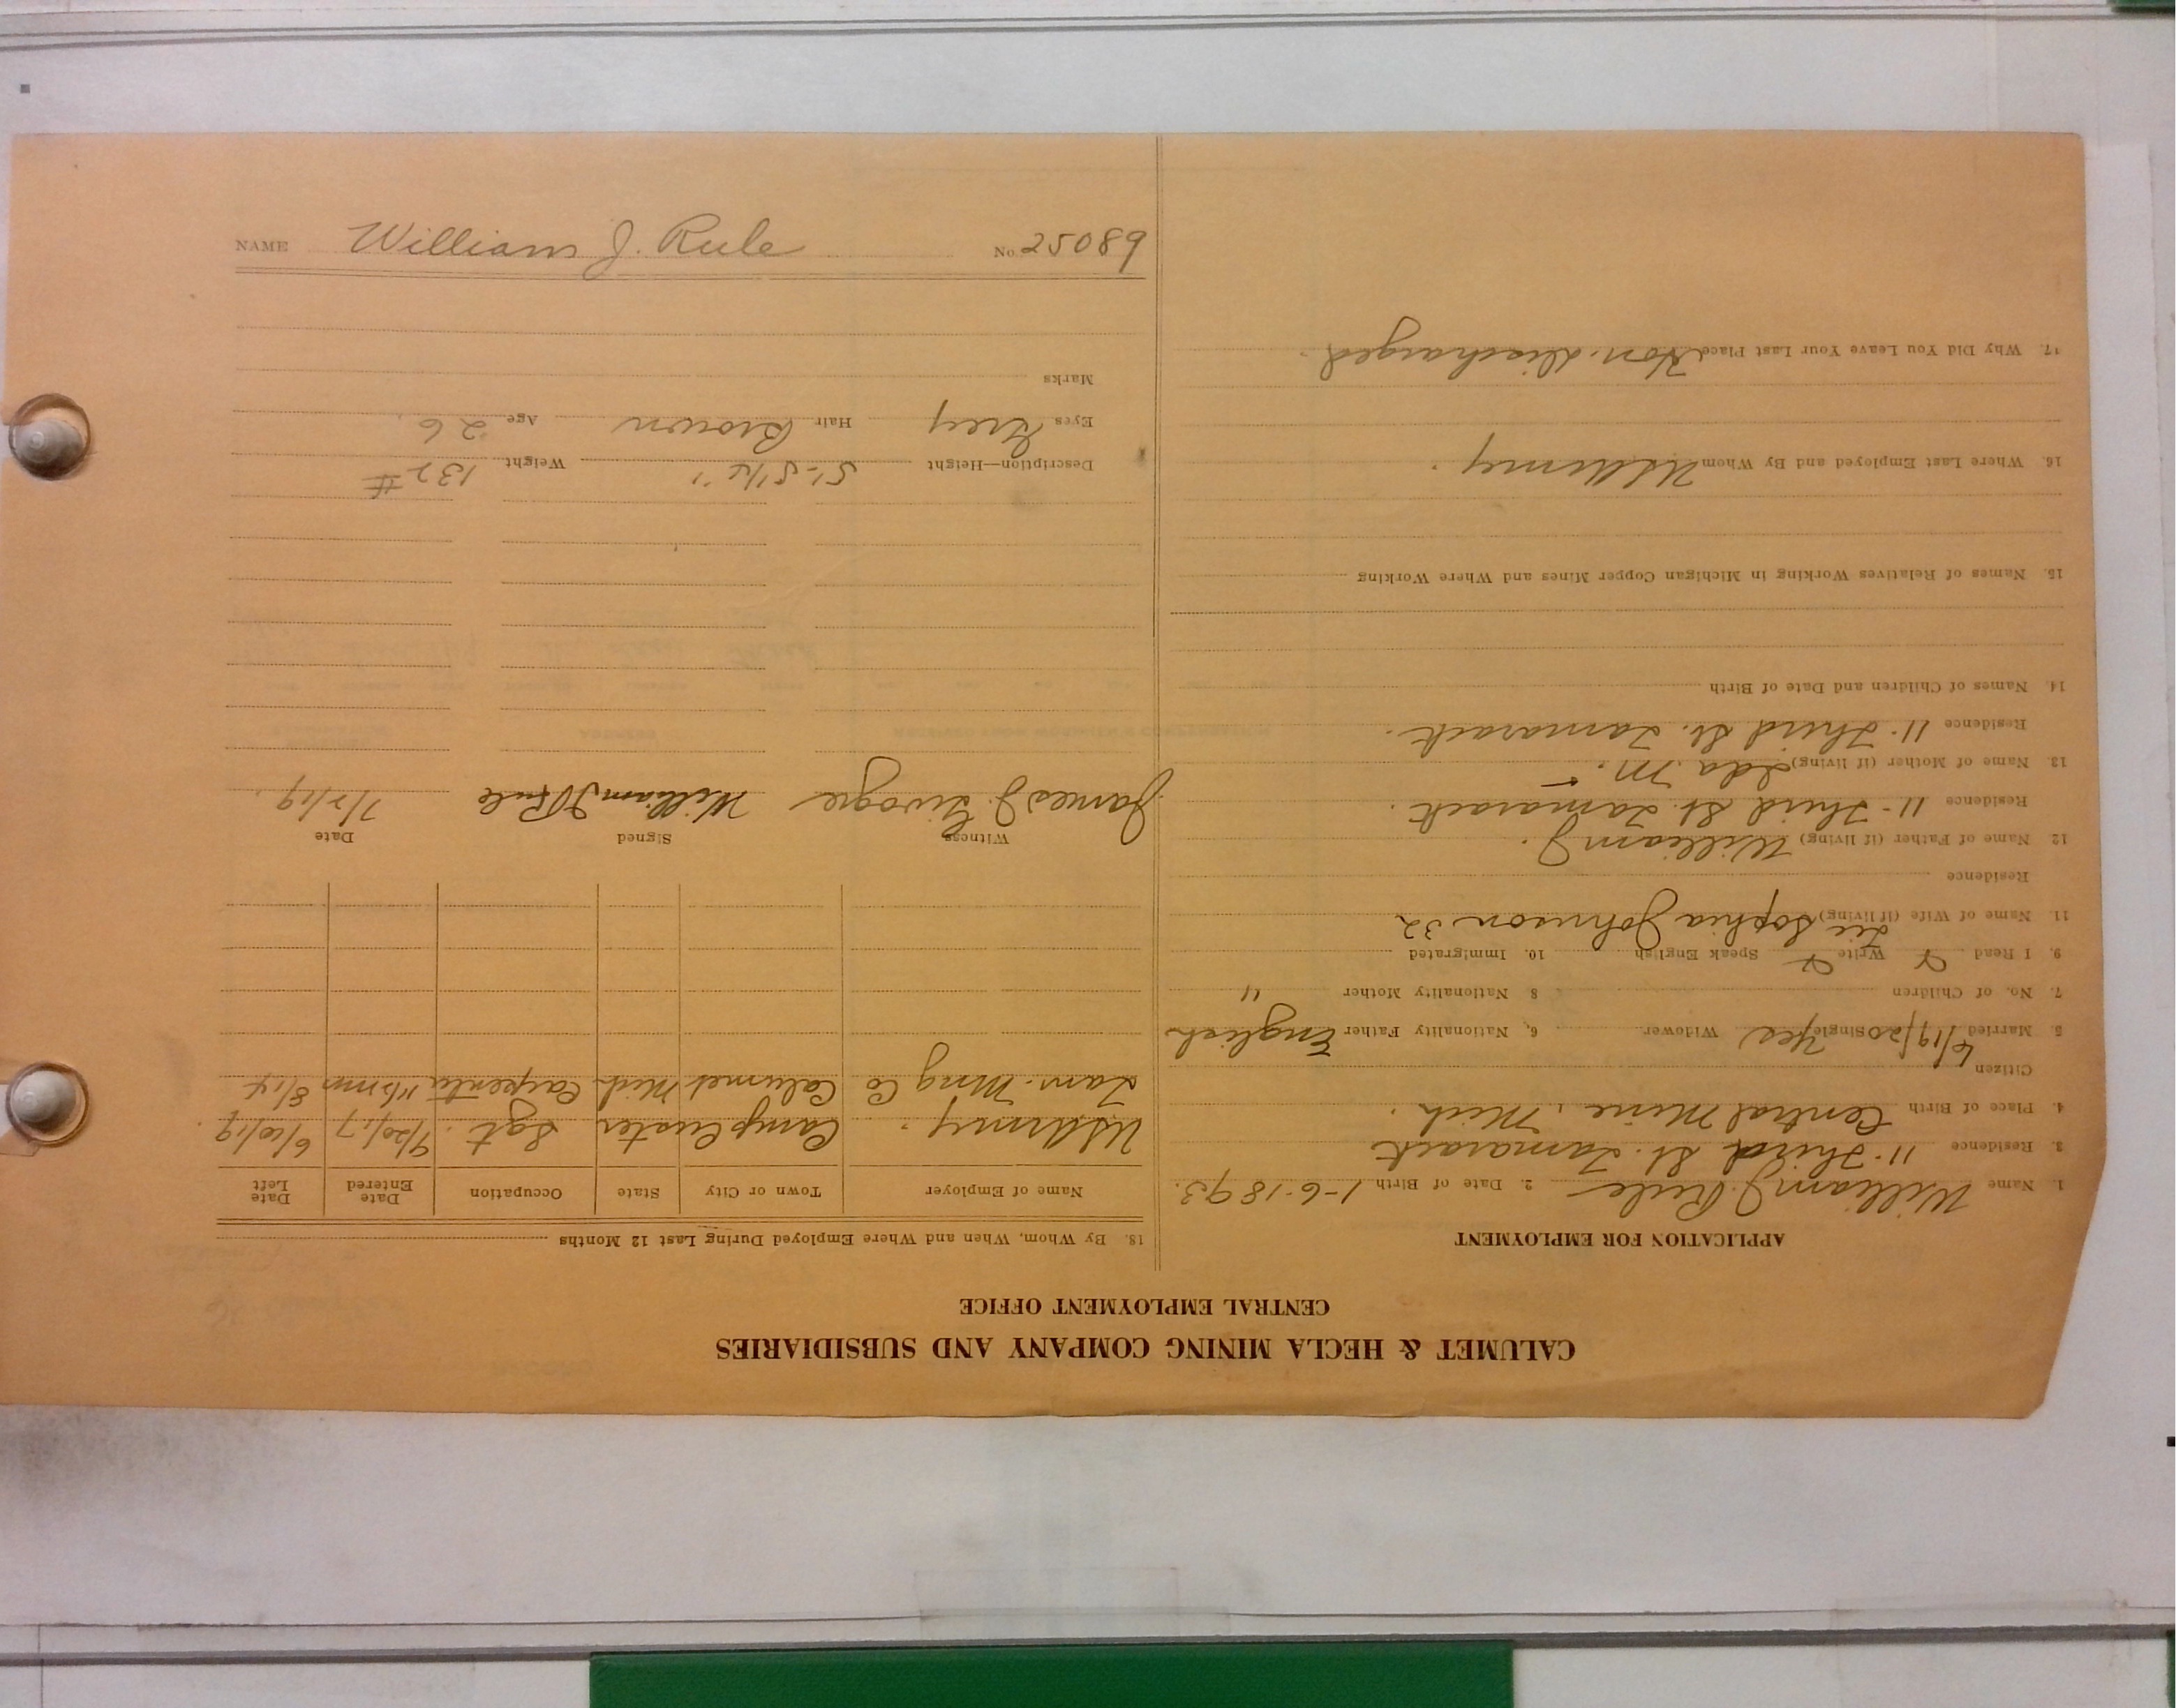 CALUMET & HECLA MINING COMPANY AND SUBSIDIARIES
CENTRAL EMPLOYMENT OFFICE
APPLICATION FOR EMPLOYMENT
1. Name William J. Rule 2. Date of Birth 1-6-1893.
3. Residence 11-Third St. Tamarack
4. Place of Birth Central Mine, Mich.
Citizen
5. Married 6/19/20 Single Yes Widower 6. Nationality Father English
7. No. of Children 8 Nationality Mother "
9. I Read Write Speak English 10. Immigrated
11. Name of Wife (if living) Sophia Johnson 32
Residence
12 Name of Father (if living) William J.
Residence 11-Third St. Tamarack.
13. Name of Mother (if living) Ida M.
Residence 11-Third St. Tamarack.
14. Names of Children and Date of Birth
15. Names of Relatives Working in Michigan Copper Mines and Where Working
16. Where Last Employed and By Whom US Army.
17. Why Did You Leave Your Last Place Hon. Discharged.
18. By Whom, When and Where Employed During Last 12 Months
Name of Employer Town or City State Occupation Date Entered Date Left
US Army. Camp Custer Sgt. 9/20/17 6/20/19
Tam. Mng Co Calumet Mich Carpenter 8/14
Witness Signed Date
James J. William J Rule 7/2/19.
Description—Height 5'-5 1/2" Weight 132 #
Eyes Grey Hair Brown Age 26.
Marks
NAME William J. Rule No. 25089